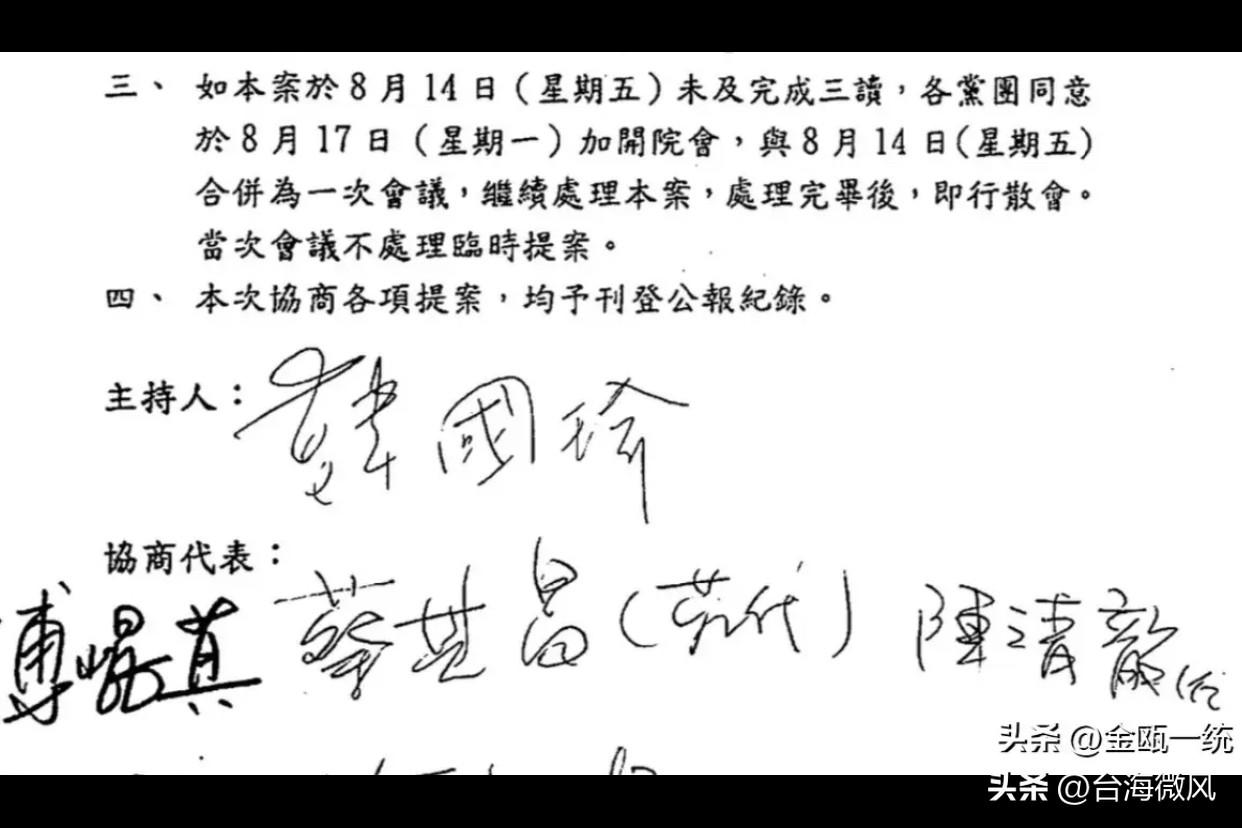 三、 如本案於8月14日（星期五）未及完成三讀，各黨團同意
於8月17日（星期一）加開院會，與8月14日（星期五）
合併為一次會議，繼續處理本案，處理完畢後，即行散會。
當次會議不處理臨時提案。
四、 本次協商各項提案，均予刊登公報紀錄。
主持人：韓國瑜
協商代表：
傅崐萁 蔡其昌（代） 陳清龍
头条 @金瓯一统
头条 @台海微风